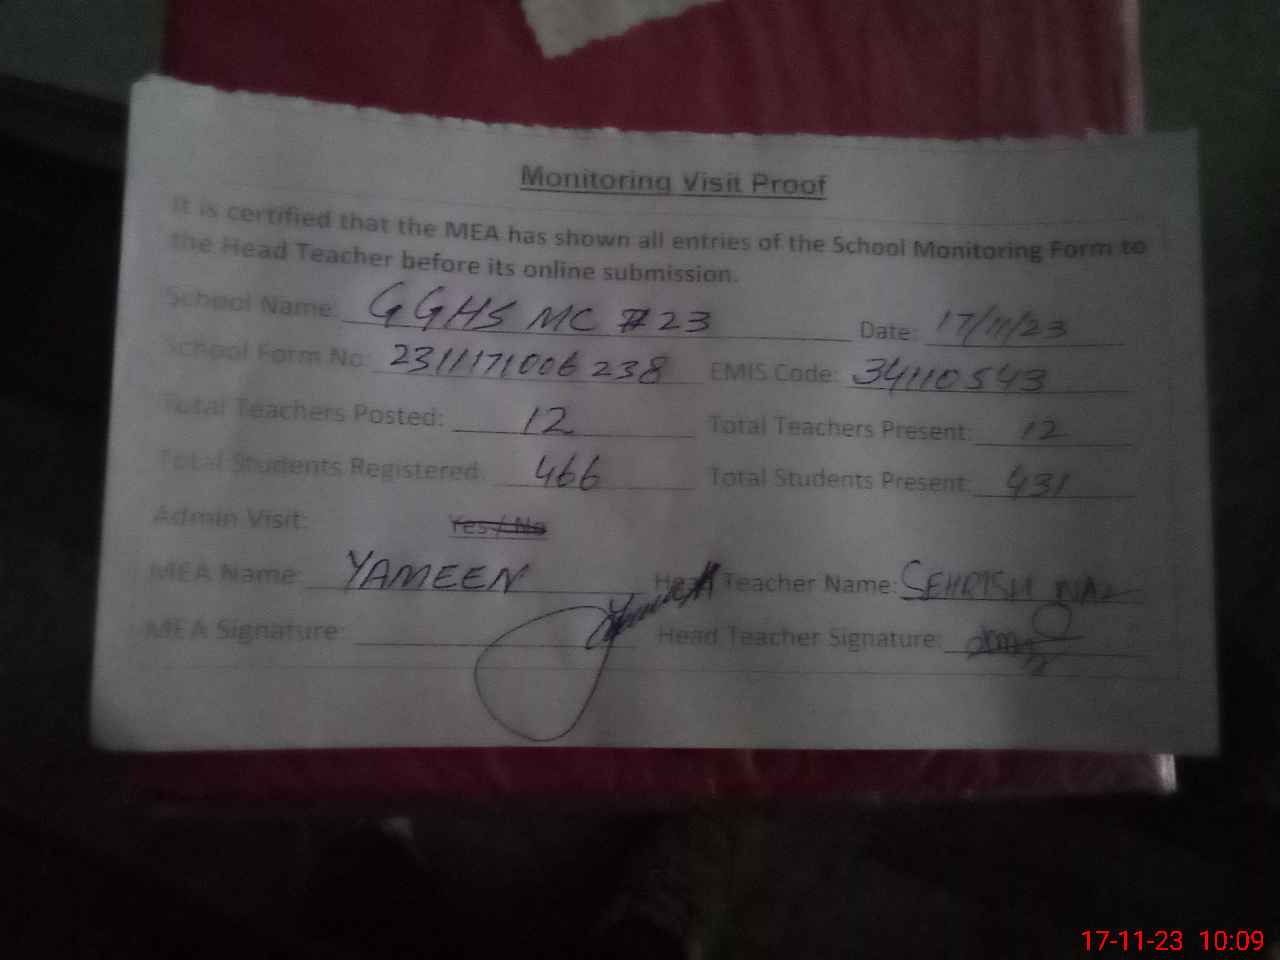 Monitoring Visit Proof
It is certified that the MEA has shown all entries of the School Monitoring Form to
the Head Teacher before its online submission.
School Name: GGHS MC #23 Date: 17/11/23
School Form No: 2311171006238 EMIS Code: 34110543
Total Teachers Posted: 12 Total Teachers Present: 12
Total Students Registered: 466 Total Students Present: 431
Admin Visit: Yes / No
MEA Name: YAMEEN Head Teacher Name: SEHRISH NAZ
MEA Signature: Head Teacher Signature:
17-11-23 10:09